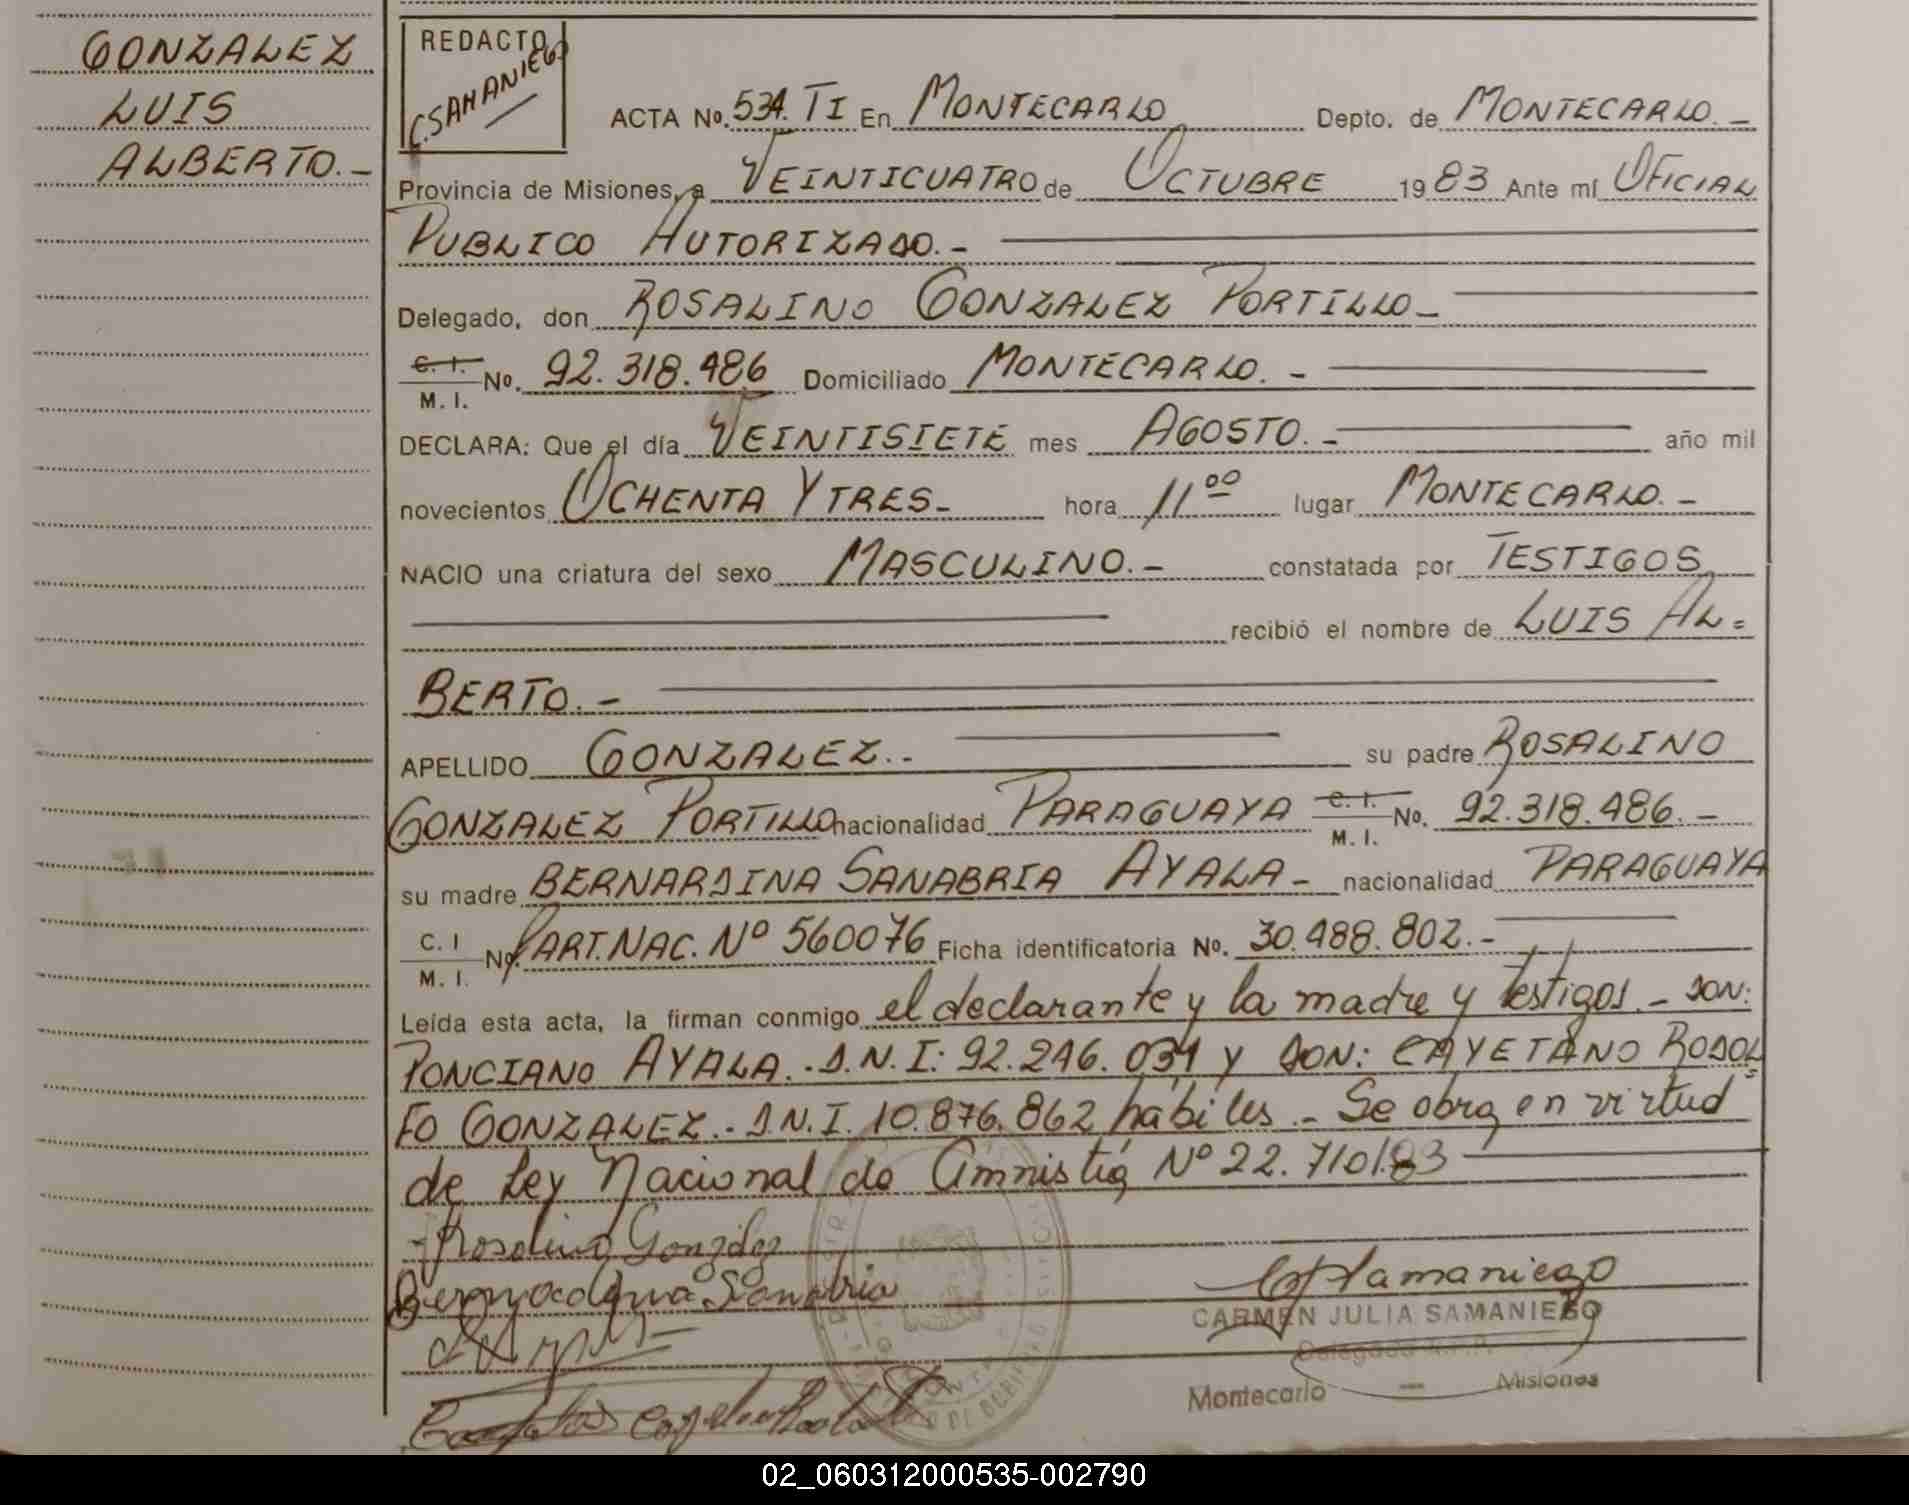 GONZALEZ
LUIS
ALBERTO.-
REDACTO
C.SAMANIEGO
ACTA No. 534. TI En MONTECARLO Depto. de MONTECARLO.-
Provincia de Misiones, a VEINTICUATRO de OCTUBRE 1983 Ante mí OFICIAL
PUBLICO AUTORIZADO.-
Delegado, don ROSALINO GONZALEZ PORTILLO-
C. I.
M. I. No. 92.318.486 Domiciliado MONTECARLO. -
DECLARA: Que el día VEINTISIETE mes AGOSTO. - año mil
novecientos OCHENTA Y TRES- hora 11 00 lugar MONTECARLO.-
NACIO una criatura del sexo MASCULINO.- constatada por TESTIGOS
recibió el nombre de LUIS AL=
BERTO.-
APELLIDO GONZALEZ.- su padre ROSALINO
GONZALEZ PORTILLO nacionalidad PARAGUAYA C. I.
M. I. No. 92.318.486.-
su madre BERNARDINA SANABRIA AYALA- nacionalidad PARAGUAYA
C. I
M. I. No. PART.NAC. Nº 560076 Ficha identificatoria No. 30.488.802.-
Leída esta acta, la firman conmigo el declarante y la madre y testigos.- DON:
PONCIANO AYALA.- D.N.I: 92.246.031 y DON: CAYETANO RODOL=
FO GONZALEZ.- D.N.I. 10.876.862 hábiles.- Se obra en virtud
de Ley Nacional de Amnistía Nº 22.710/83
Rosalino Gonzalez
Sanabria
CSamaniego
CARMEN JULIA SAMANIEGO
Delegada R.P.P.
Montecarlo - Misiones
02_060312000535-002790